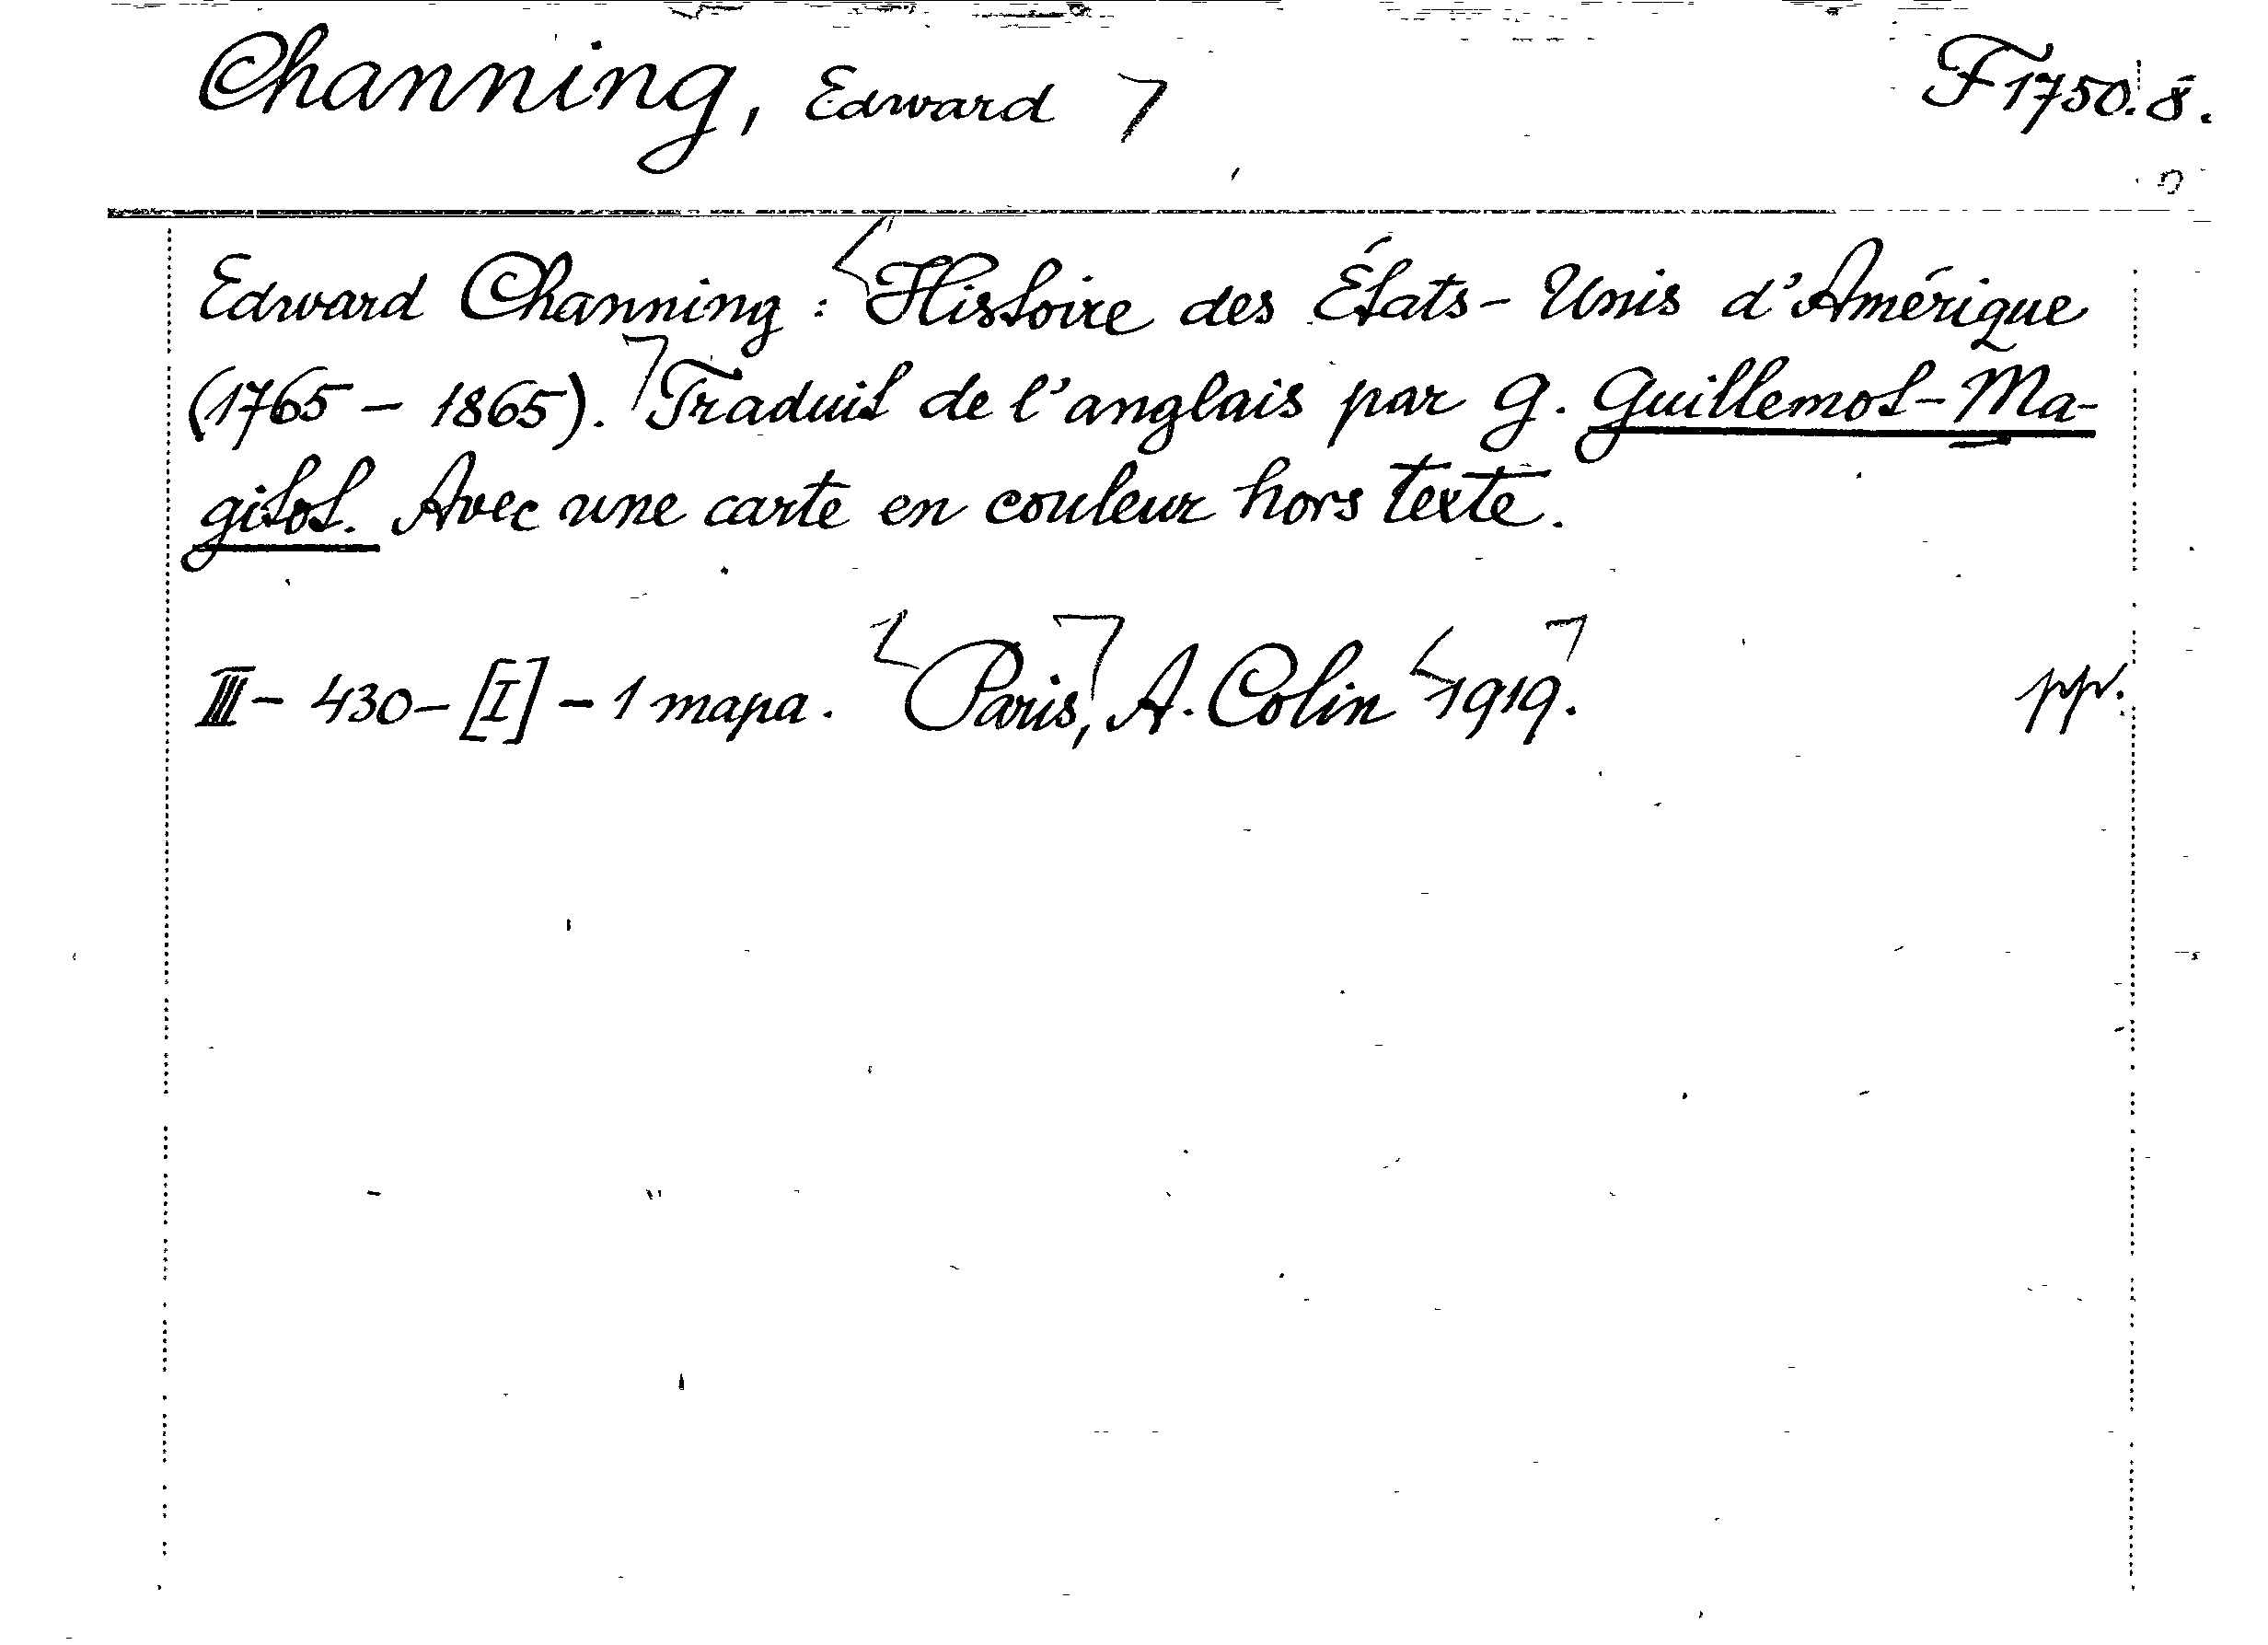 Channing, Edward F1750.8.
Edward Channing: Histoire des États-Unis d'Amérique
(1765-1865). Traduit de l'anglais par G. Guillemot-Ma-
gitot. Avec une carte en couleur hors texte.
III-430-[I]-1 mapa. Paris, A. Colin 1919. pp.